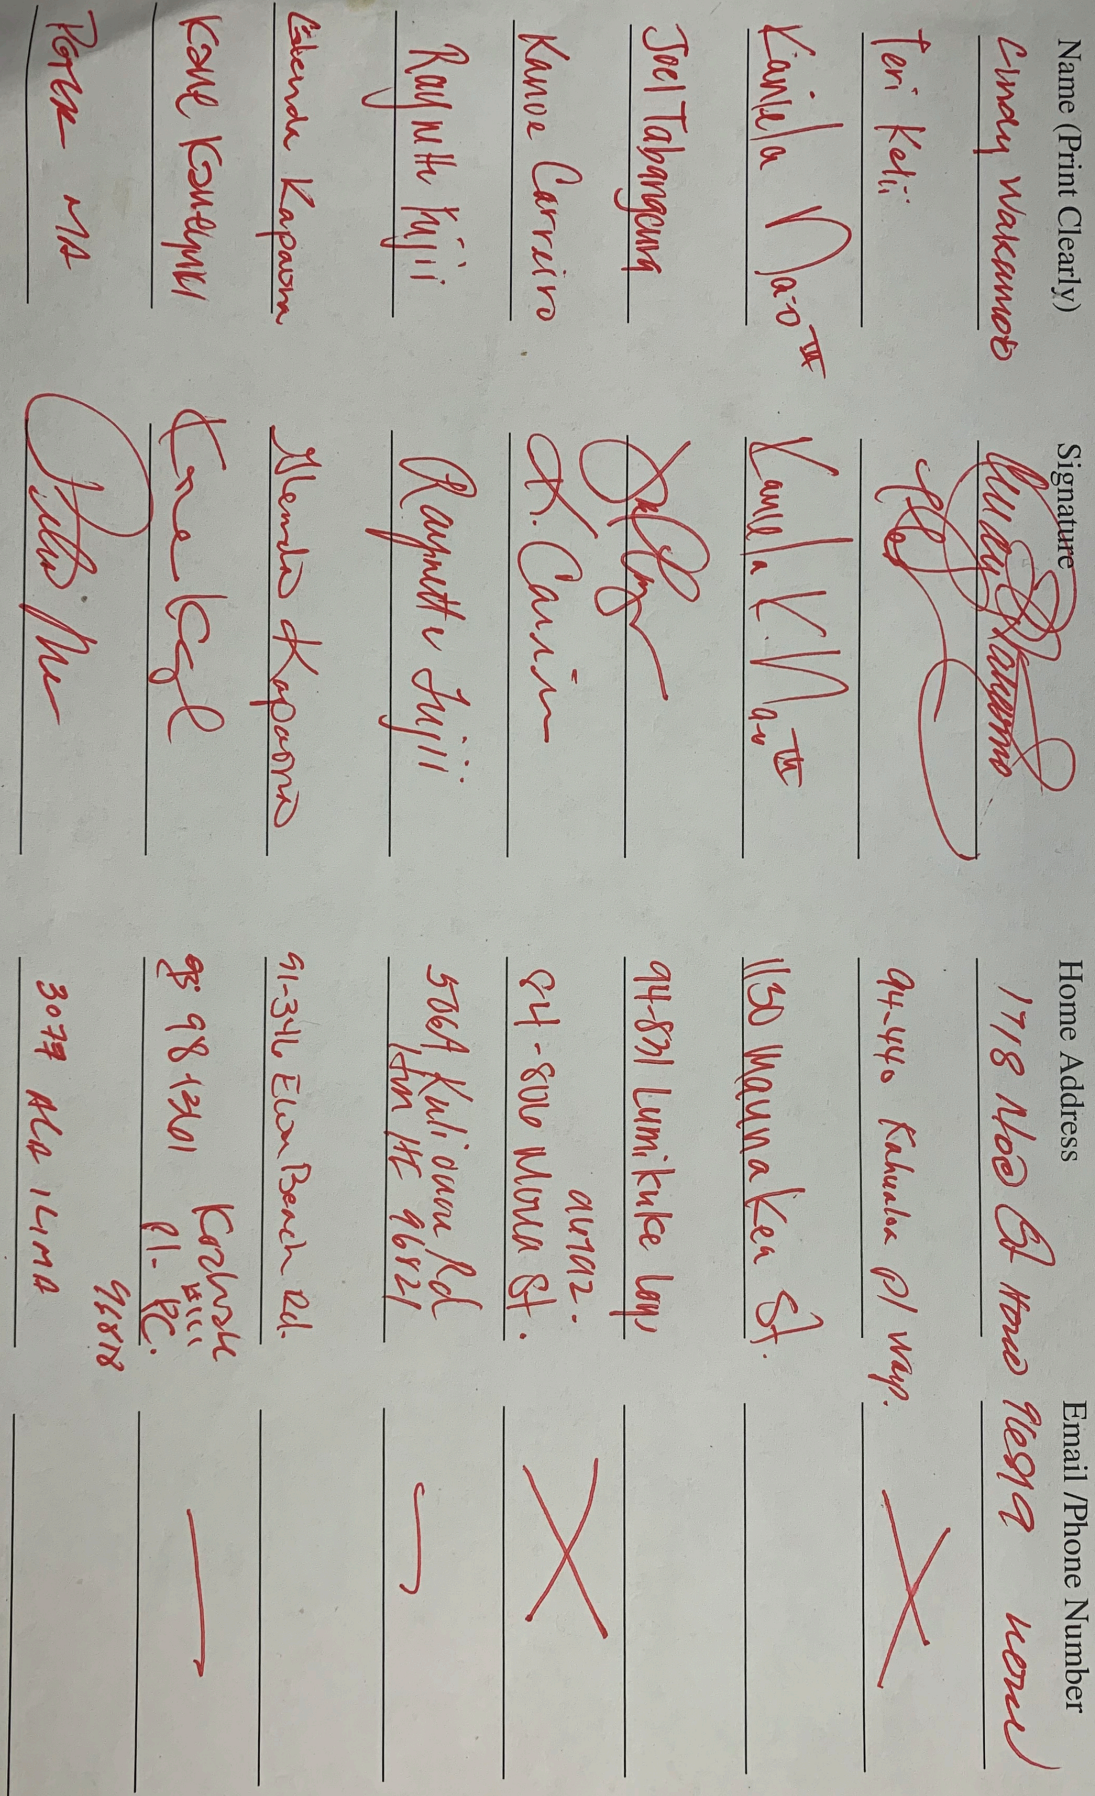 Name (Print Clearly) Signature Home Address Email /Phone Number
Cindy Wakamoto 1718 Noe St Hono 96819 none
Teri Kelii 94-440 Kahualoa pl Waip.
Kaniela Nao III Kaniela K. Nao III 1130 Mauna Kea St.
Joel Tabangcura 94-831 Lumikuke Loop
Kanoe Carreiro K. Carreiro 84-806 Moua St.
96792
Raynette Fujii Raynette Fujii 506A Kuliouou Rd
Hon HI 96821
Glenda Kapaona Glenda Kapaona 91-346 Ewa Beach Rd.
Kane 98-1261
Pl- PC.
MA 3077 ALA ILIMA
96818